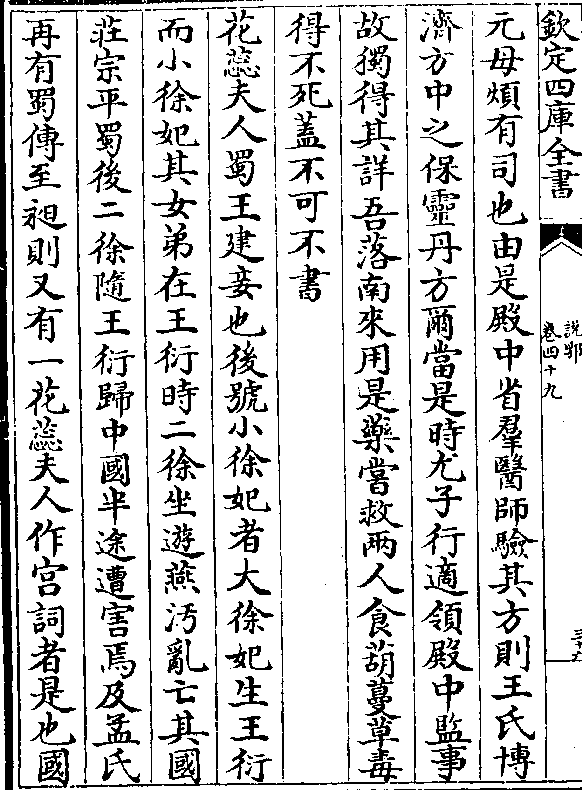 欽定四庫全書
說郛
卷四十九
元毋煩有司也由是殿中省羣醫師驗其方則王氏博
濟方中之保靈丹方爾當是時尤子行適領殿中監事
故獨得其詳吾落南來用是藥嘗救兩人食葫蔓草毒
得不死蓋不可不書
花蕊夫人蜀王建妾也後號小徐妃者大徐妃生王衍
而小徐妃其女弟在王衍時二徐坐遊燕汚亂亡其國
莊宗平蜀後二徐隨王衍歸中國半途遭害焉及孟氏
再有蜀傳至昶則又有一花蕊夫人作宮詞者是也國